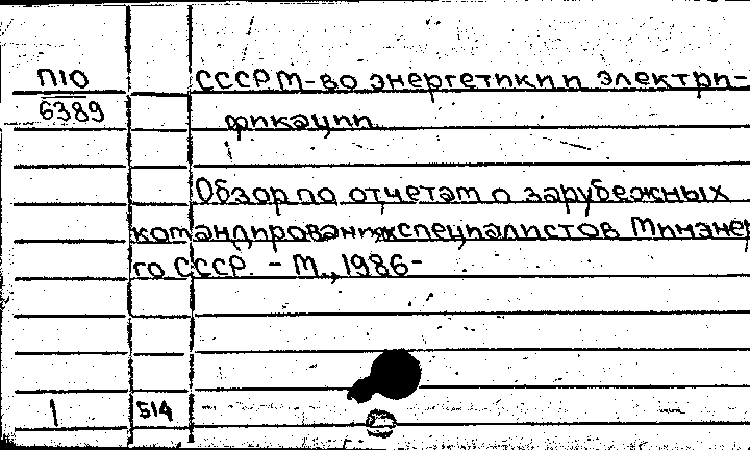 П10 СССР. М-во энергетики и электри-
6389 фикации.
Обзор по отчетам о зарубежных
командированиях специалистов Минэнер
го СССР. - М., 1986-
1 514